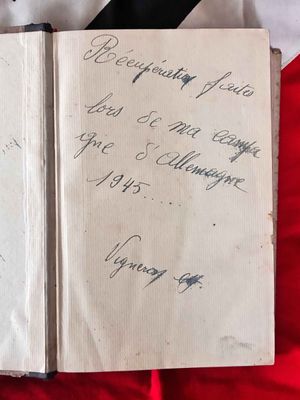 Récupération faites
lors de ma campa
gne d'Allemagne
1945.....
Vigneron